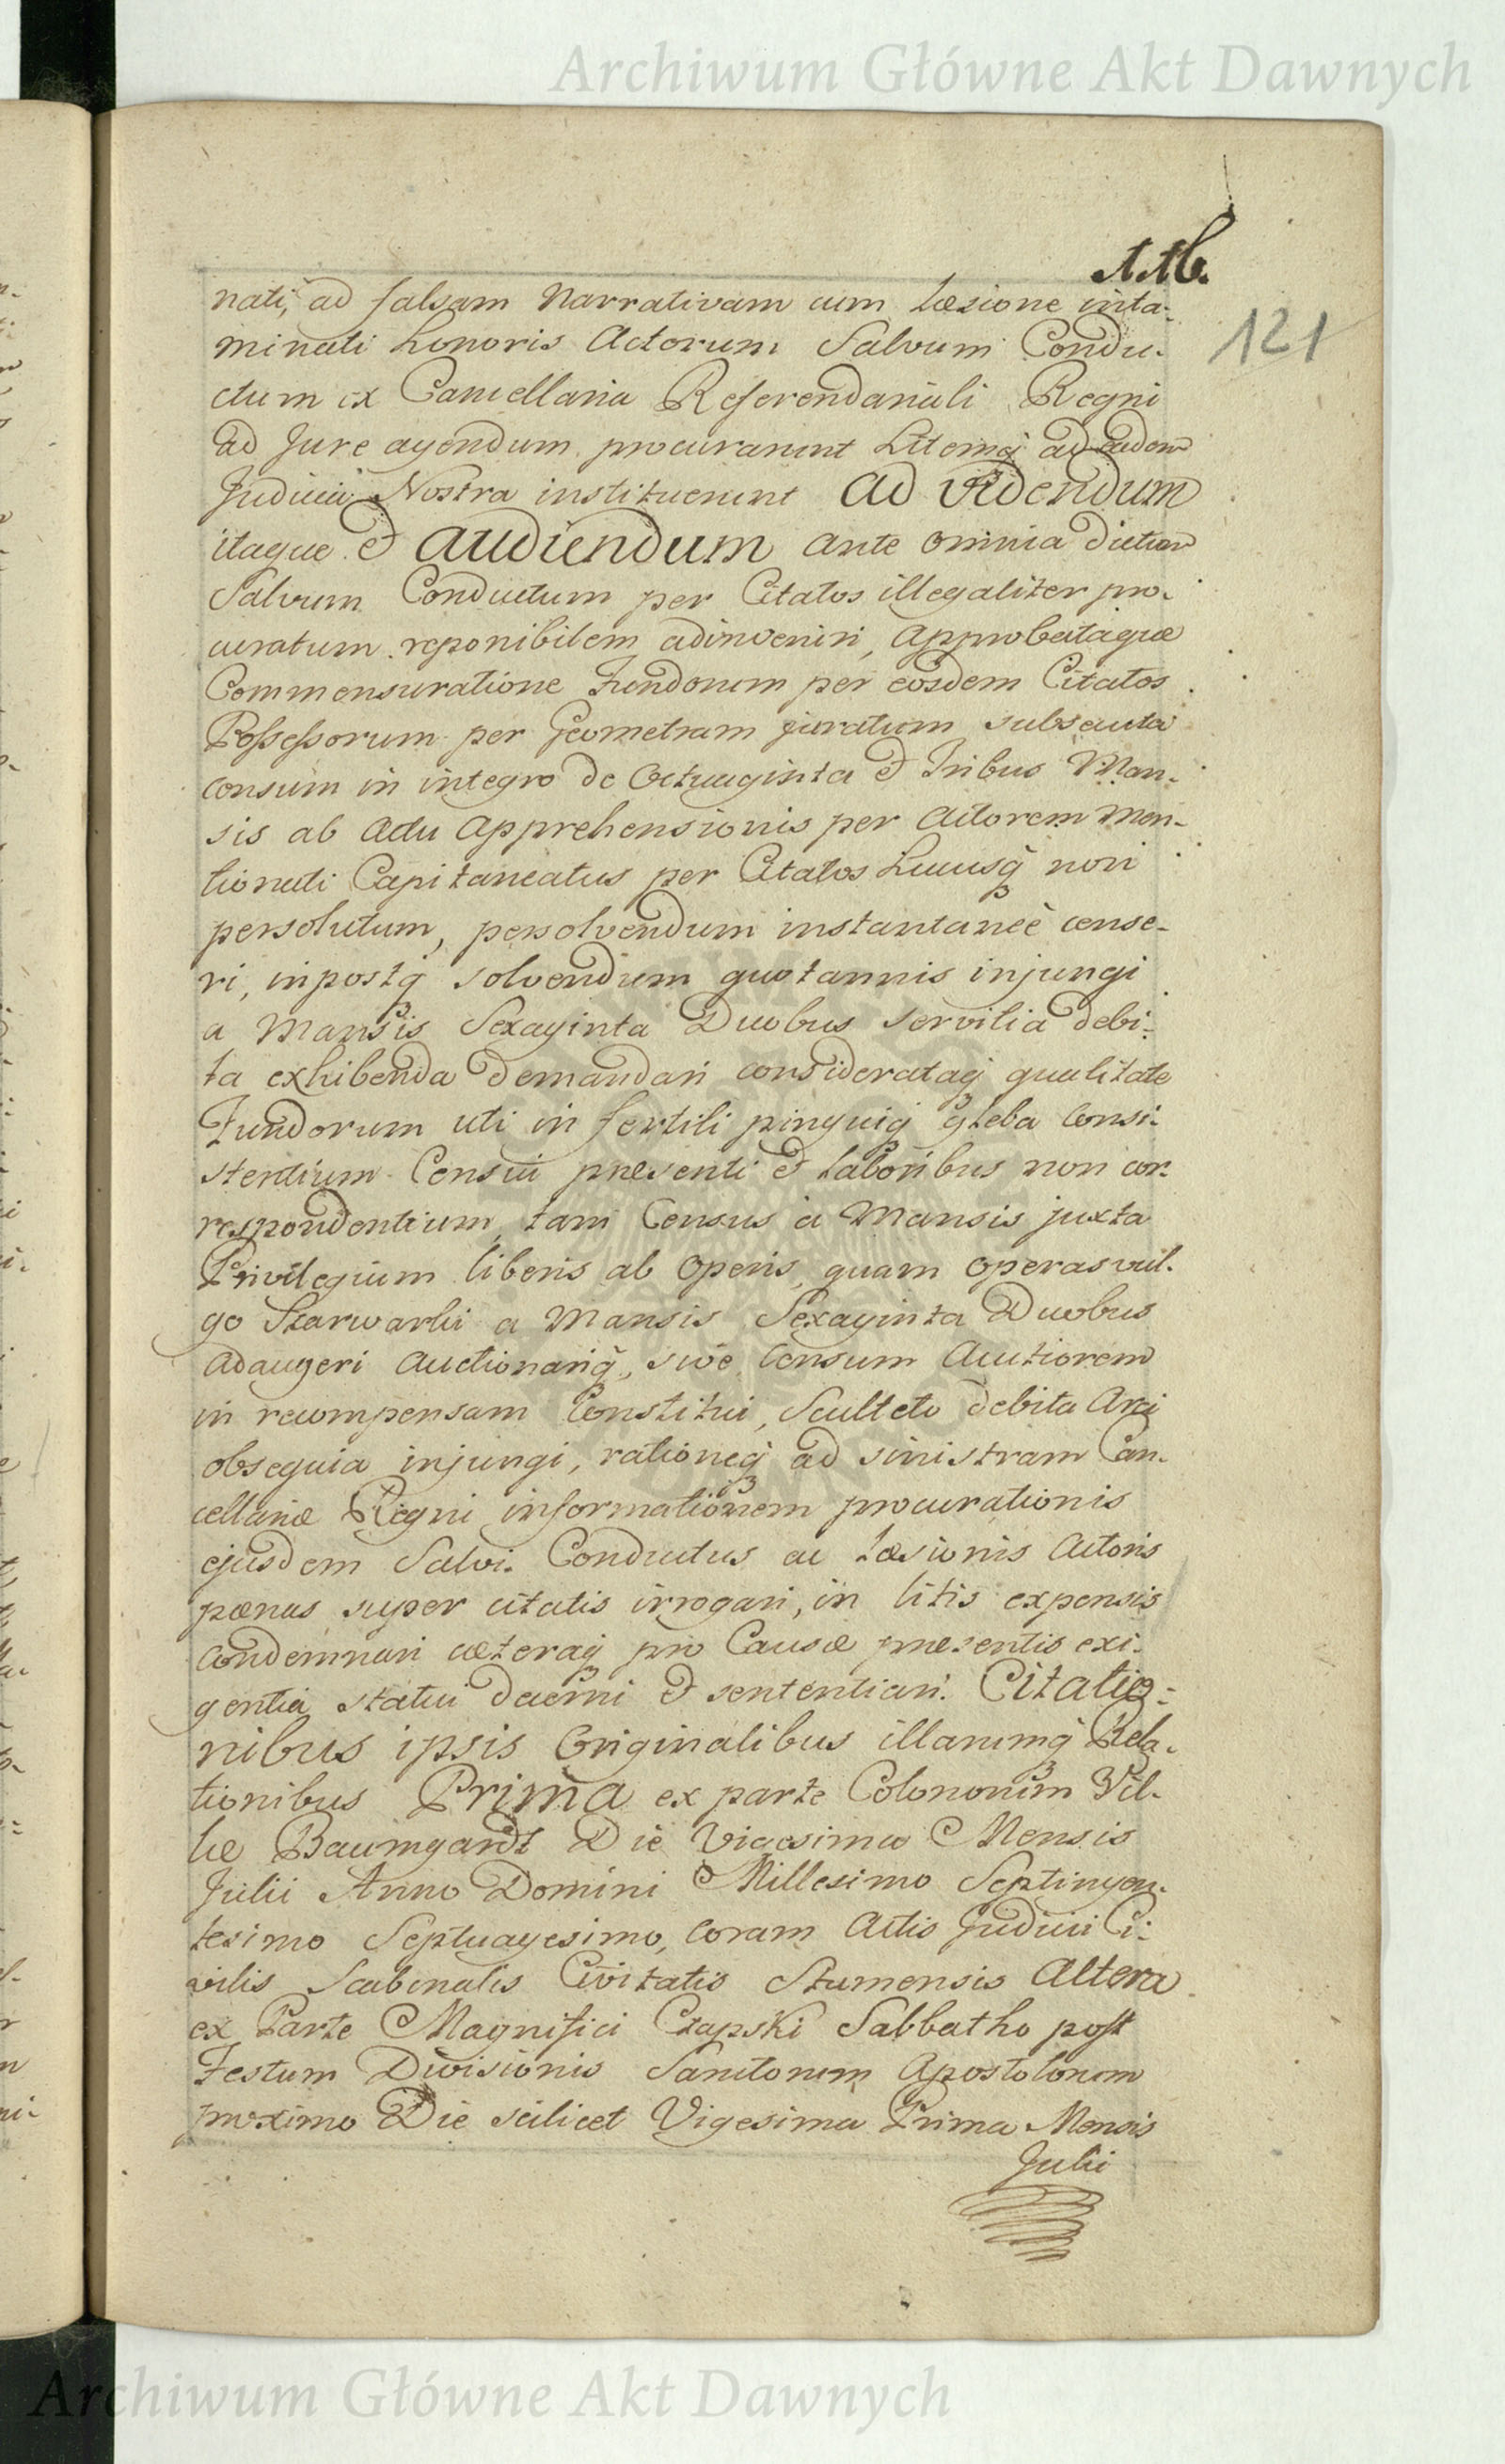 Archiwum Główne Akt Dawnych
121
nati, ad falsam Narrativam cum Læsione inta-
minati Honoris Actorum Salvum Condu-
ctum ex Cancellaria Referendariali Regni
ad Jure agendum procurarunt Litemq̃ ad eadem
Judicia Nostra instituerunt Ad Videndum
itaque & Audiendum ante omnia dictum
Salvum Conductum per Citatos illegaliter pro-
curatum reponibilem adinveniri, Approbataque
Commensuratione Fundorum per eosdem Citatos
Possessorum per Geometram juratum subsecuta
censum in integro de Octuaginta & Tribus Man-
sis ab Actu Apprehensionis per Actorem Men-
tionati Capitaneatus per Citatos Hucusq̃ non
persolutum, persolvendum instantaneè cense-
ri, inpostq̃ solvendum quotannis injungi
a Mansis Sexaginta Duobus servilia debi-
ta exhibenda demandari considerataq̃ qualitate
Fundorum uti in fertili pinguiq̃ gleba Consi-
stentium Censui præsenti & Laboribus non cor-
respondentium, tam Census a Mansis juxta
Privilegium liberis ab Operis, quam operas vul-
go Szarwarki a Mansis Sexaginta Duobus
adaugeri Auctionariq̃, sivè Censum Auctiorem
in recompensam Constitui, Sculteto debita Arci
obsequia injungi, rationeq̃ ad sinistram Can-
cellariæ Regni informationem procurationis
ejusdem Salvi Conductus ac Læsionis Actoris
pœnas super citatis irrogari, in litis expensis
Condemnari cæteraq̃ pro Causæ præsentis exi-
gentia statui decerni & sententiari. Citatio-
nibus ipsis Originalibus illarumq̃ Rela-
tionibus Prima ex parte Colonorum Vil-
læ Baumgardt Die Vigesima Mensis
Julii Anno Domini Millesimo Septingen-
tesimo Septuagesimo, coram Actis Judicii Ci-
vilis Scabinalis Civitatis Stumensis Altera
ex Parte Magnifici Czapski Sabbatho post
Festum Divisionis Sanctorum Apostolorum
proximo Die scilicet Vigesima Prima Mensis
Julii
Archiwum Główne Akt Dawnych